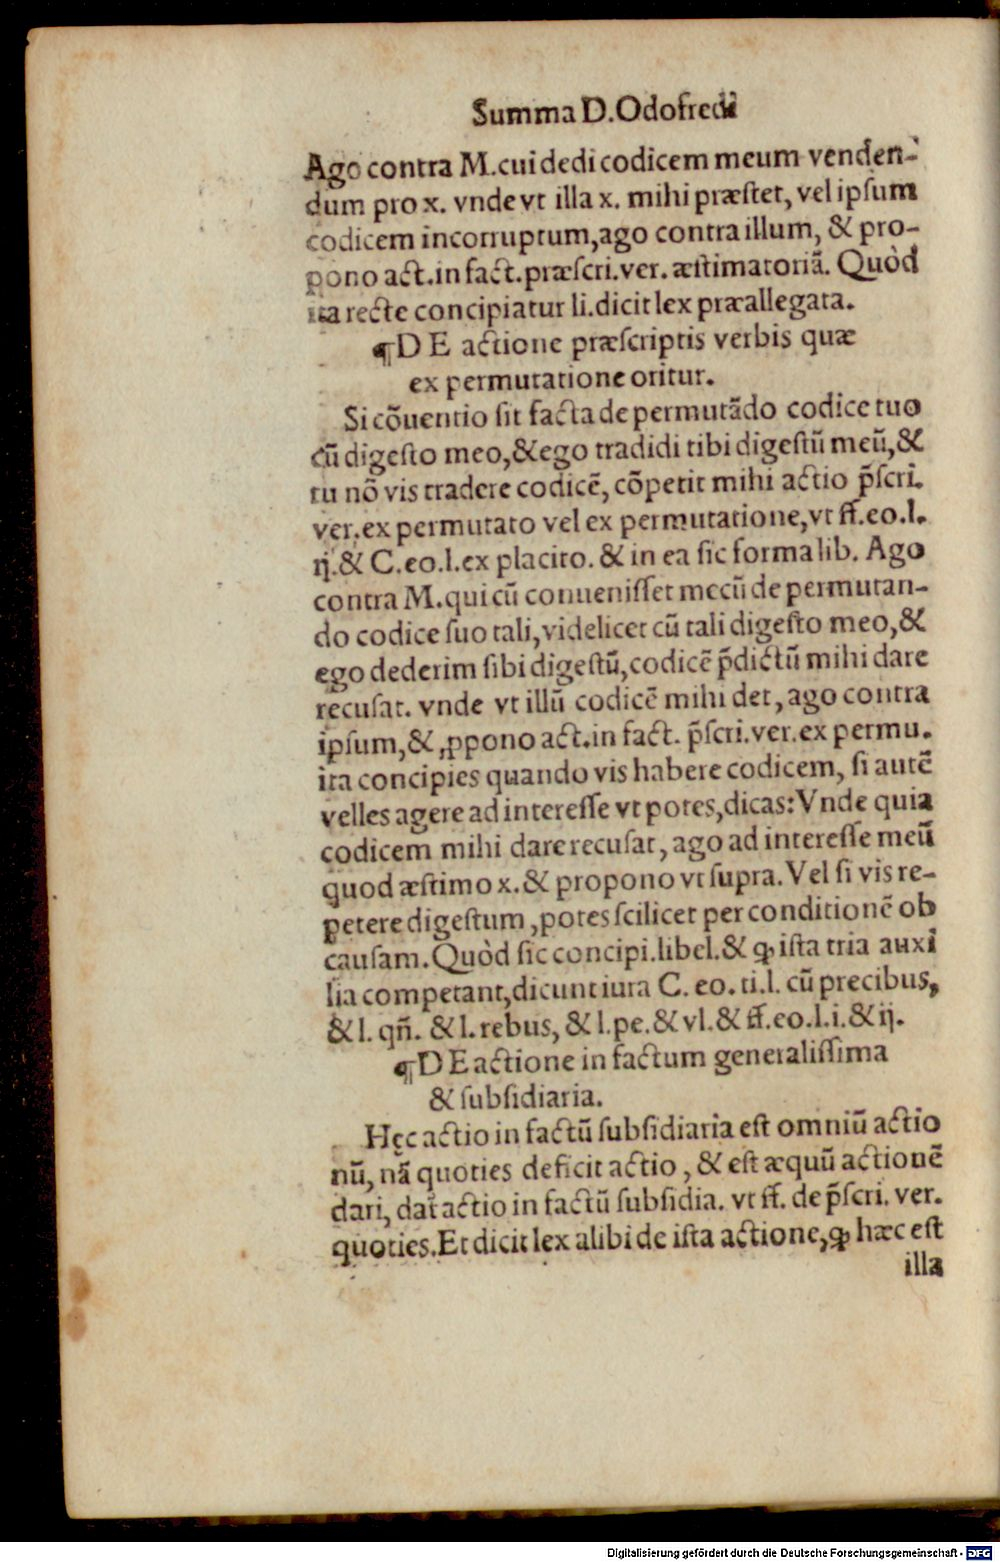 Summa D. Odofredi
Ago contra M. cui dedi codicem meum venden-
dum pro x. vnde vt illa x. mihi præstet, vel ipsum
codicem incorruptum, ago contra illum, & pro-
pono act. in fact. præscri. ver. æstimatoriã. Quòd
ita recte concipiatur li. dicit lex præallegata.
¶ DE actione præscriptis verbis quæ
ex permutatione oritur.
Si cõuentio sit facta de permutãdo codice tuo
cũ digesto meo, & ego tradidi tibi digestũ meũ, &
tu nõ vis tradere codicẽ, cõpetit mihi actio p̃scri.
ver. ex permutato vel ex permutatione, vt ff. eo. l.
ij. & C. eo. l. ex placito. & in ea sic forma lib. Ago
contra M. qui cũ conuenisset mecũ de permutan-
do codice suo tali, videlicet cũ tali digesto meo, &
ego dederim sibi digestũ, codicẽ p̃dictũ mihi dare
recusat. vnde vt illũ codicẽ mihi det, ago contra
ipsum, & ꝓpono act. in fact. p̃scri. ver. ex permu.
ita concipies quando vis habere codicem, si autẽ
velles agere ad interesse vt potes, dicas: Vnde quia
codicem mihi dare recusat, ago ad interesse meũ
quod æstimo x. & propono vt supra. Vel si vis re-
petere digestum, potes scilicet per conditionẽ ob
causam. Quòd sic concipi. libel. & ꝙ ista tria auxi
lia competant, dicunt iura C. eo. ti. l. cũ precibus,
& l. qñ. & l. rebus, & l. pe. & vl. & ff. eo. l. i. & ij.
¶ DE actione in factum generalissima
& subsidiaria.
Hęc actio in factũ subsidiaria est omniũ actio
nũ, nã quoties deficit actio, & est æquũ actionẽ
dari, dat̃ actio in factũ subsidia. vt ff. de p̃scri. ver.
quoties. Et dicit lex alibi de ista actione, ꝙ hæc est
illa
Digitalisierung gefördert durch die Deutsche Forschungsgemeinschaft - DFG